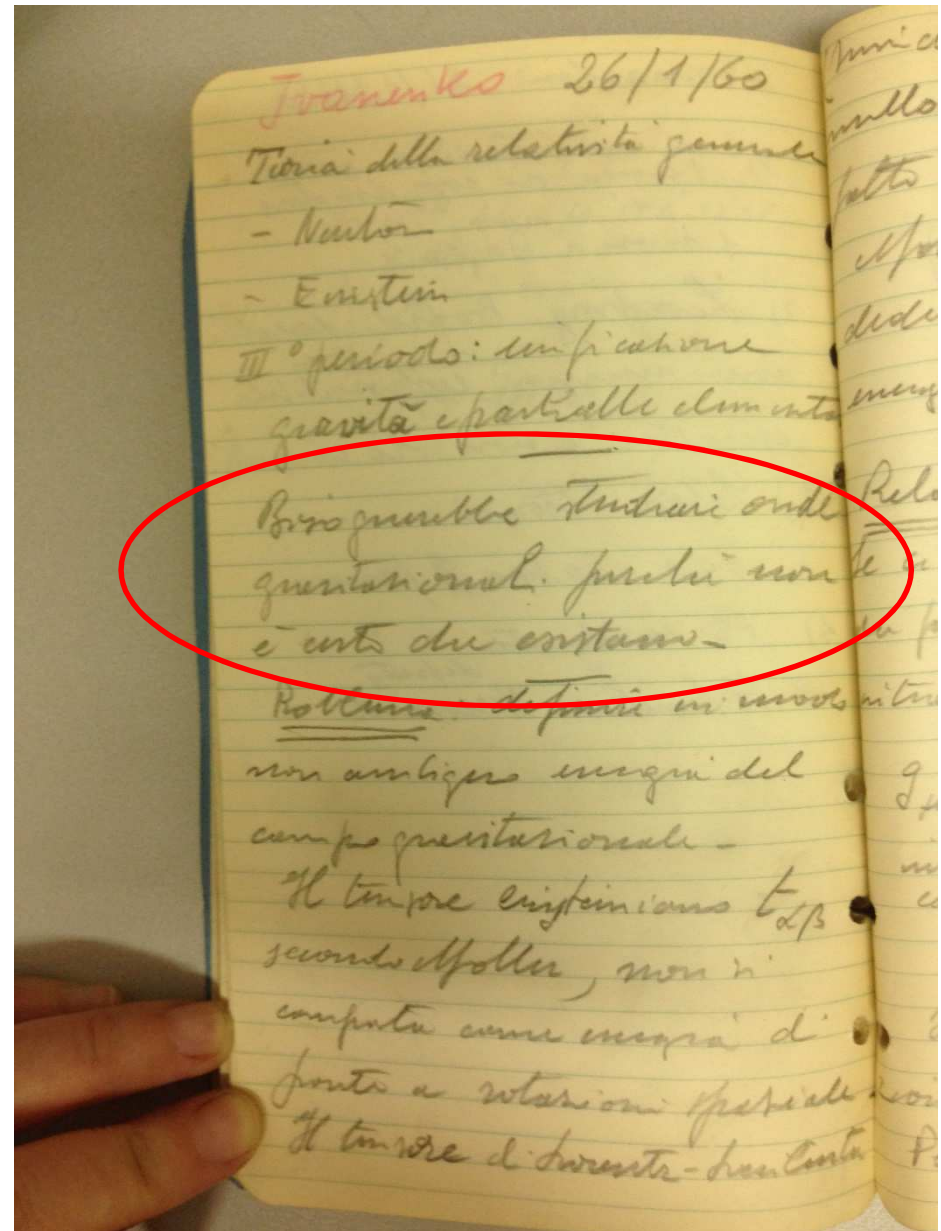 Ivanenko 26/1/60
Teoria della relatività generale
- Newton
- Einstein
III° periodo: unificazione
gravità e particelle elementa
Bisognerebbe studiare onde
gravitazional. perchè non
è certo che esistano -
Problema: definire in modo
non ambiguo energia del
campo gravitazionale -
Il tensore einsteiniano tαβ
secondo Møller, non si
comporta come energia di
fronte a rotazioni spaziale
Il tensore di Lorentz - Levi Civita
nullo
fatto
dedu
energ
Rela